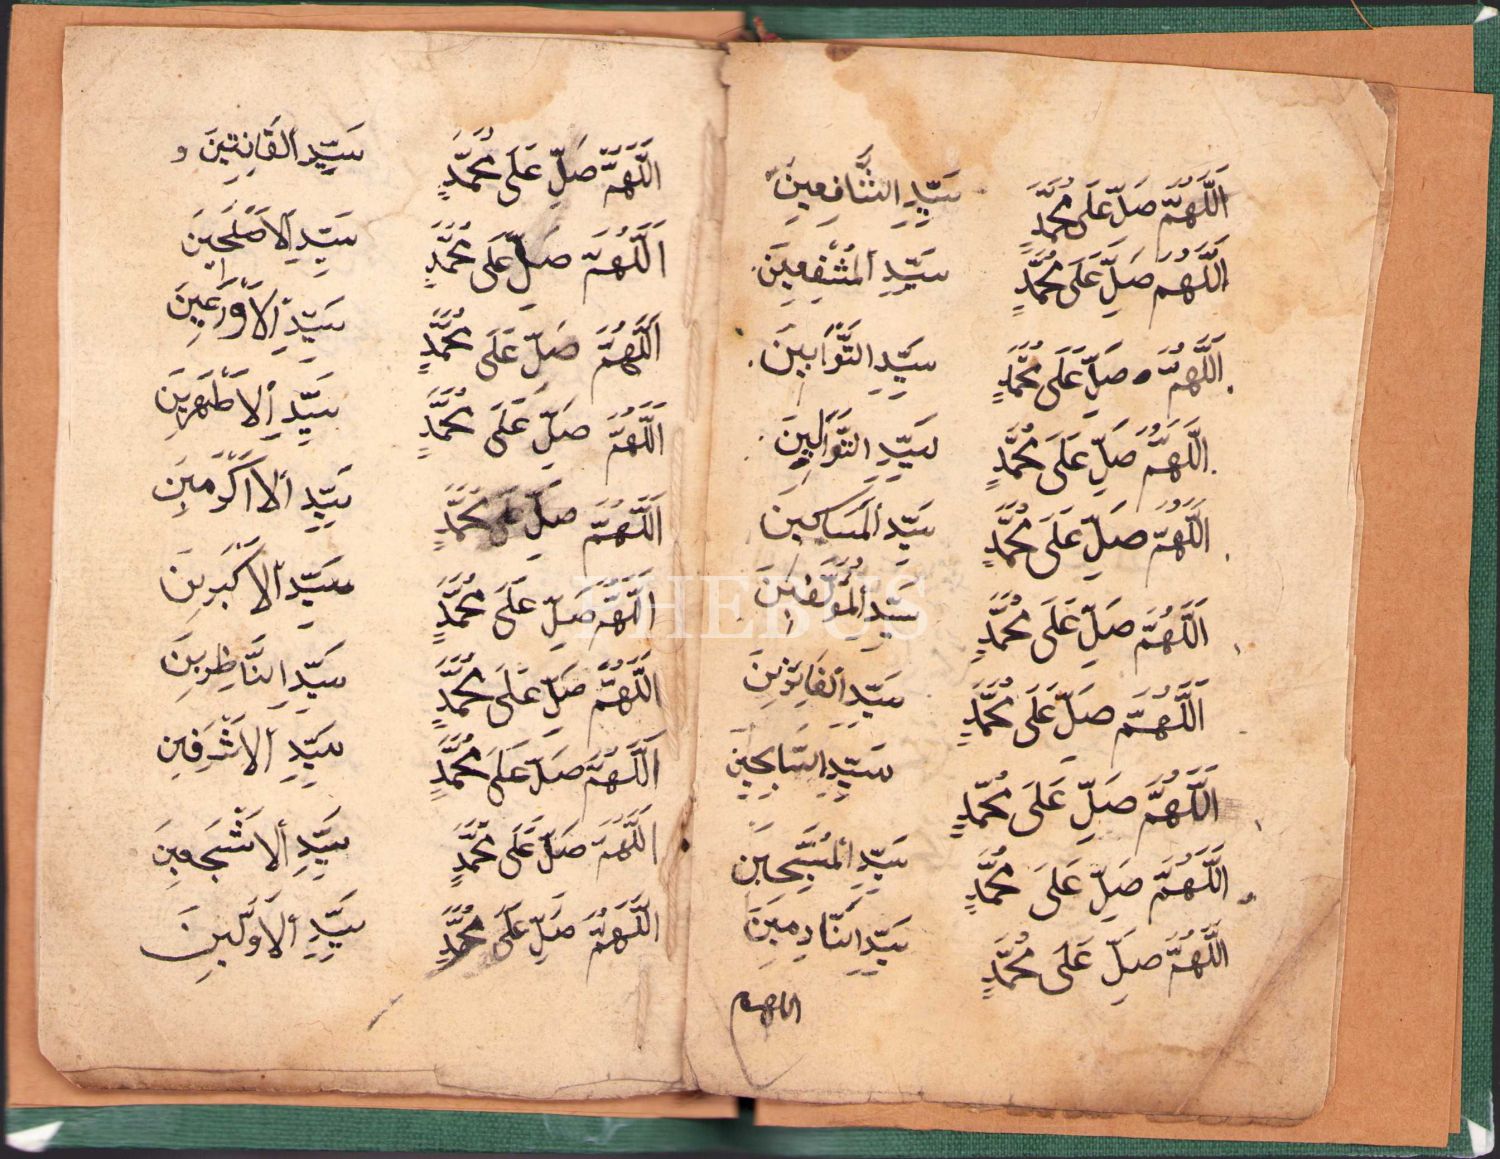 اَللَّهُمَّ صَلِّ عَلَى مُحَمَّدٍ سَيِّدِ الشَّافِعِينَ
اَللَّهُمَّ صَلِّ عَلَى مُحَمَّدٍ سَيِّدِ الْمُشْفِعِينَ
اَللَّهُمَّ صَلِّ عَلَى مُحَمَّدٍ سَيِّدِ التَّوَّابِينَ
اَللَّهُمَّ صَلِّ عَلَى مُحَمَّدٍ سَيِّدِ
اَللَّهُمَّ صَلِّ عَلَى مُحَمَّدٍ سَيِّدِ الْمَسَاكِينَ
اَللَّهُمَّ صَلِّ عَلَى مُحَمَّدٍ سَيِّدِ
اَللَّهُمَّ صَلِّ عَلَى مُحَمَّدٍ سَيِّدِ الْفَائِزِينَ
اَللَّهُمَّ صَلِّ عَلَى مُحَمَّدٍ سَيِّدِ
اَللَّهُمَّ صَلِّ عَلَى مُحَمَّدٍ سَيِّدِ الْمُسَبِّحِينَ
اَللَّهُمَّ صَلِّ عَلَى مُحَمَّدٍ سَيِّدِ النَّادِمِينَ
اللهم
اَللَّهُمَّ صَلِّ عَلَى مُحَمَّدٍ سَيِّدِ الْقَانِتِينَ و
اَللَّهُمَّ صَلِّ عَلَى مُحَمَّدٍ سَيِّدِ الْاَصْلَحِينَ
اَللَّهُمَّ صَلِّ عَلَى مُحَمَّدٍ سَيِّدِ الْاَوْرَعِينَ
اَللَّهُمَّ صَلِّ عَلَى مُحَمَّدٍ سَيِّدِ الْاَطْهَرِينَ
اَللَّهُمَّ صَلِّ عَلَى مُحَمَّدٍ سَيِّدِ الْاَكْرَمِينَ
اَللَّهُمَّ صَلِّ عَلَى مُحَمَّدٍ سَيِّدِ الْاَكْبَرِينَ
اَللَّهُمَّ صَلِّ عَلَى مُحَمَّدٍ سَيِّدِ النَّاظِرِينَ
اَللَّهُمَّ صَلِّ عَلَى مُحَمَّدٍ سَيِّدِ الْاَشْرَفِين
اَللَّهُمَّ صَلِّ عَلَى مُحَمَّدٍ سَيِّدِ الْاَشْجَعِينَ
اَللَّهُمَّ صَلِّ عَلَى مُحَمَّدٍ سَيِّدِ الْاَوَّلِينَ
PHEBUS